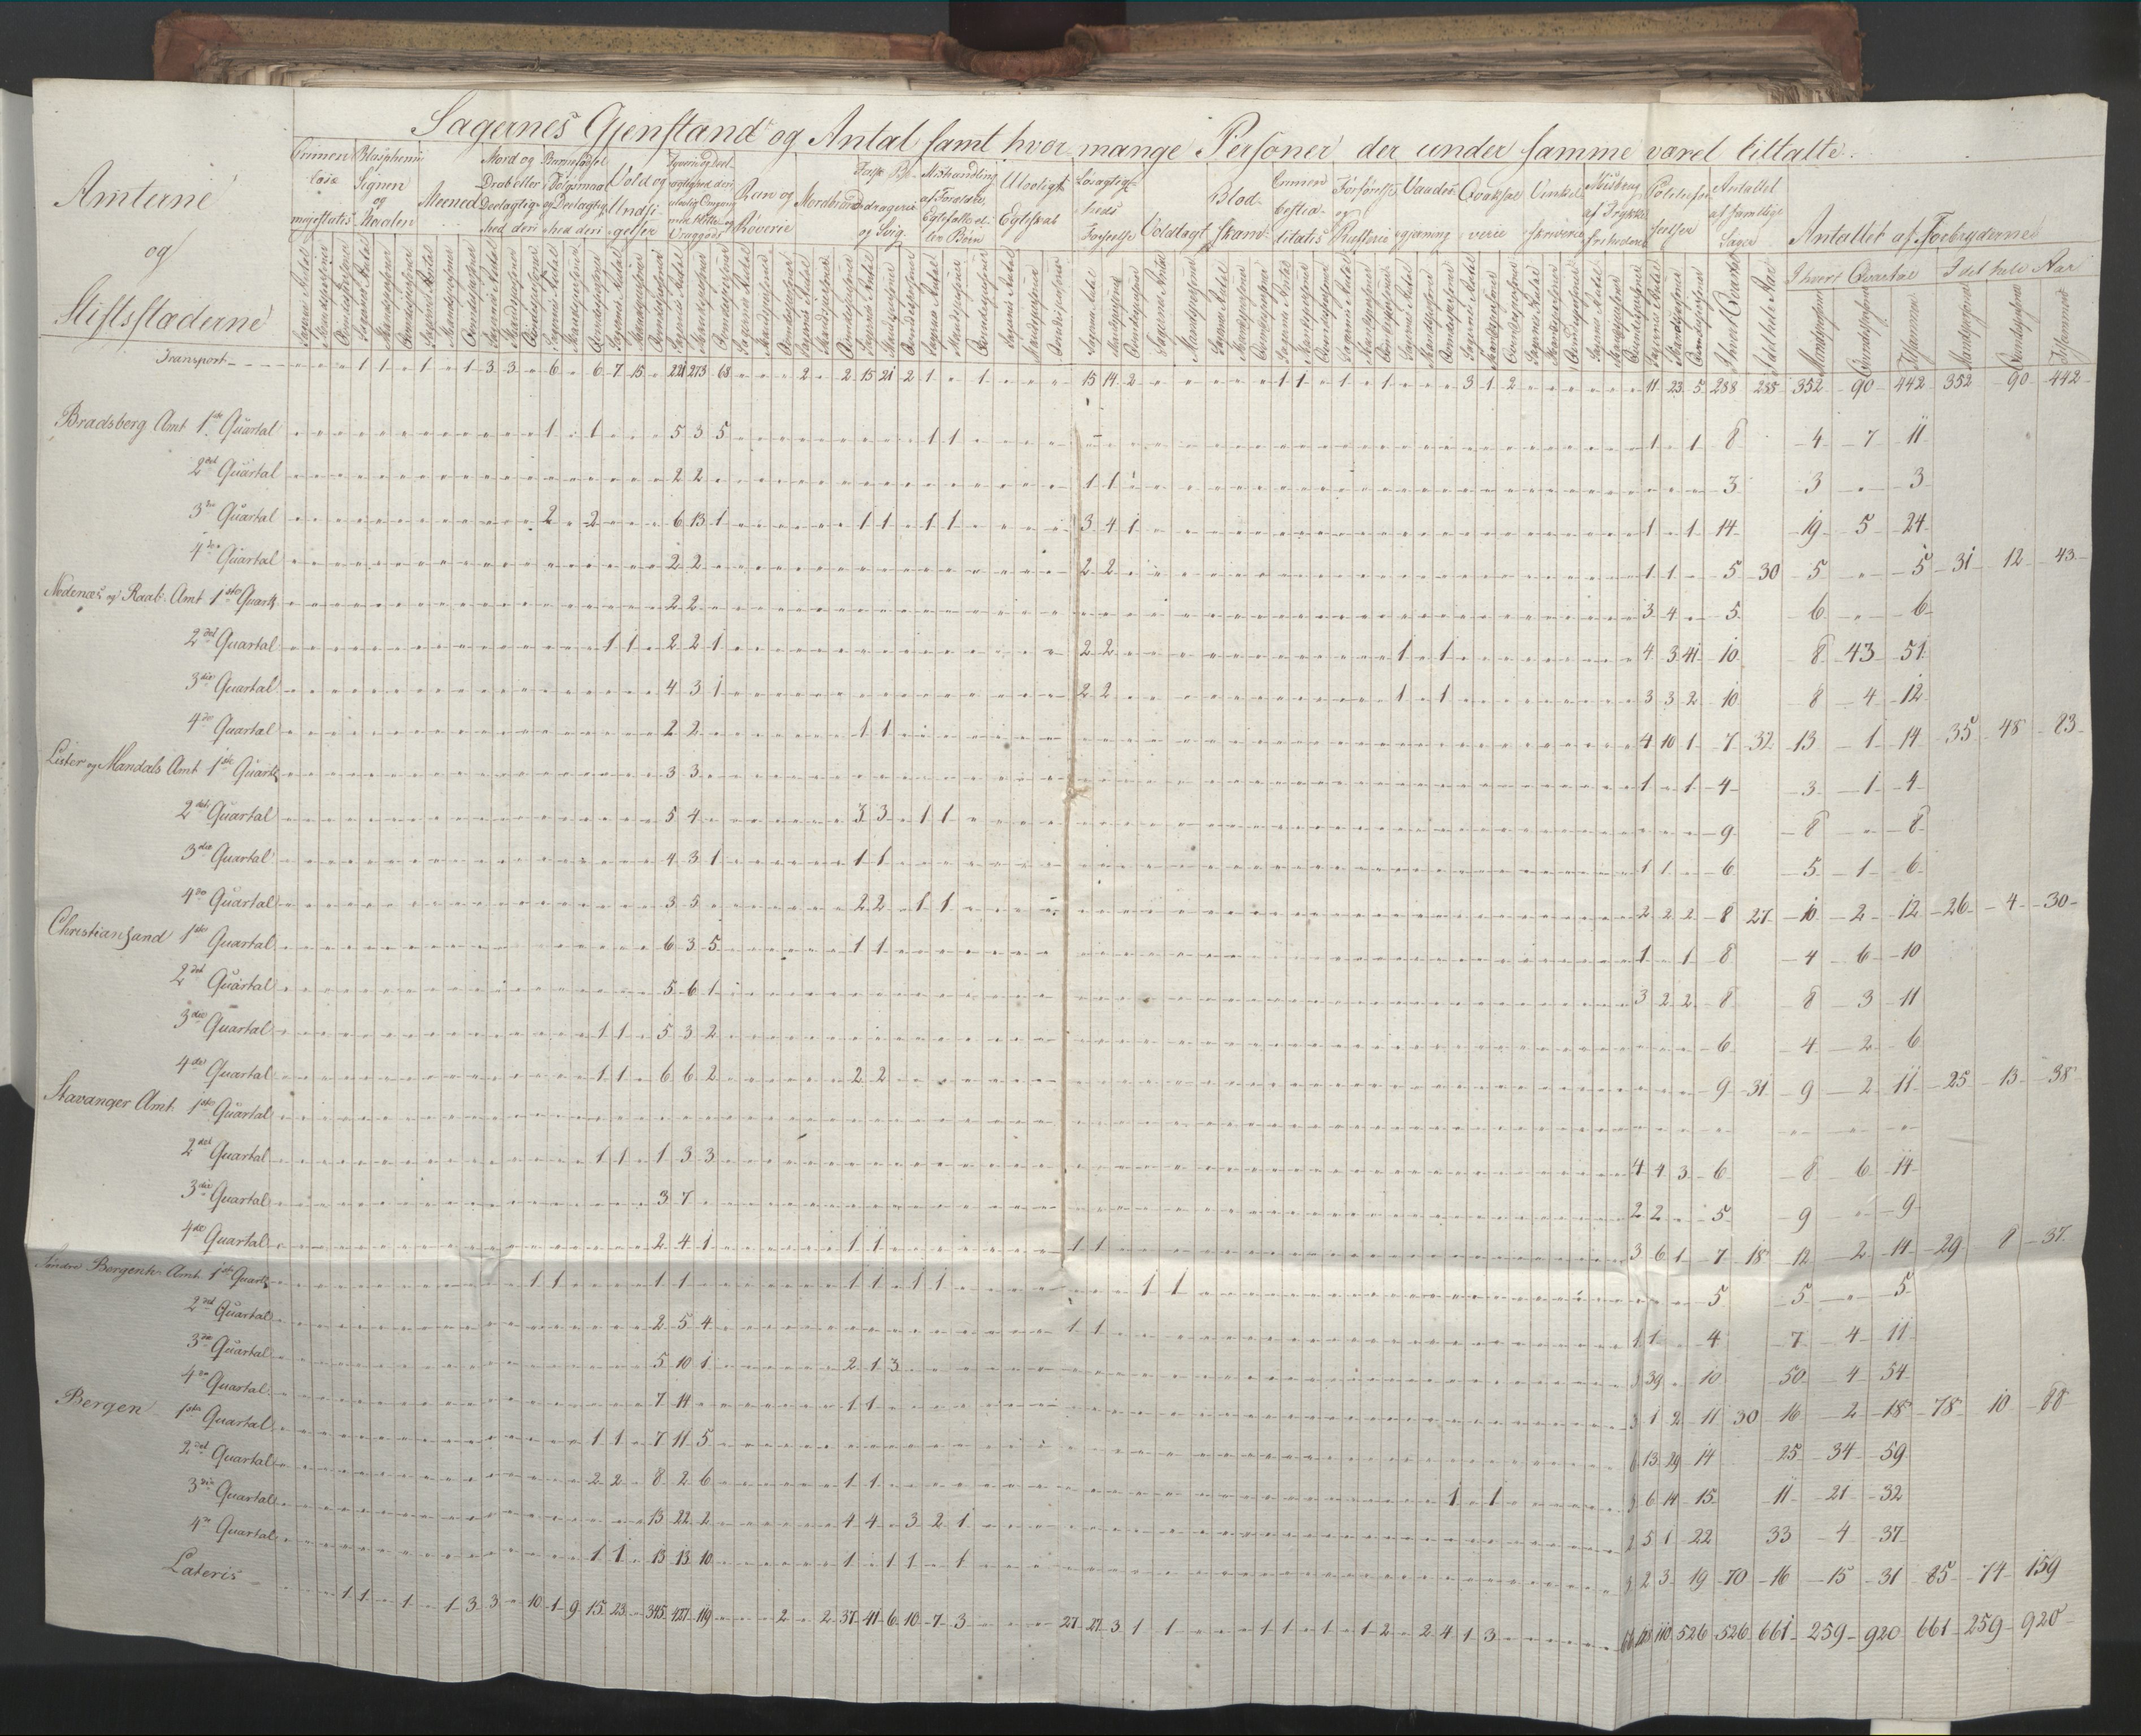 Sagernes Gjenstand og Antal samt hvor mange Personer der under samme varet tiltalte.
Amterne
og
Stiftstæderne
Crimen læsæ majestatis
Blasphemi Signen og Maalen
Meened
Mord og Drab eller Deelagtighed deri
Barnefødsel i Dølgsmaal og Deelagtighed deri
Vold og Undsigelser
Ran og Røverie
Mordbrand
Falsk Bedragerie og Svig
Mishandling af Forældre, Egtefælle eller Børn
Ulovligt Egteskab
Løsagtigheds Forseelse
Voldtægt
Blodskam
Crimen bestialitatis
Forførelse og Rufferie
Vanderi
Qvaksalverie
Vinkelskriverie
Misbrug af Trykkefriheden
Politieforseelser
Antallet af samtlige Sager
Antallet af Forbryderne
I hvert Qvartal I det hele Aar
Sagens Antal Mandspersoner Qvindespersoner
I hvert Qvartal I det hele Aar Mandspersoner Qvindespersoner Tilsammen Mandspersoner Qvindespersoner Tilsammen
Transport 1 1 1 1 3 3 6 6 7 15 221 273 68 2 2 15 21 2 1 1 15 14 2 1 1 1 1 3 1 2 11 23 5 288 288 352 90 442 352 90 442
Bradsberg Amt 1ste Quartal 1 1 5 3 5 1 1 1 1 8 4 7 11
2det Quartal 2 2 1 1 3 3 3
3die Quartal 2 2 6 13 1 1 1 1 1 3 4 1 1 1 14 19 5 24
4de Quartal 2 2 2 2 1 1 5 30 5 5 31 12 43
Nedenæs og Raab. Amt 1ste Quartl 2 2 3 4 5 6 6
2det Quartal 1 1 2 2 1 2 2 1 1 4 3 41 10 8 43 51
3die Quartal 4 3 1 2 2 1 1 3 3 2 10 8 4 12
4de Quartal 2 2 1 1 4 10 1 7 32 13 1 14 35 48 83
Lister og Mandals Amt 1ste Quartl 3 3 1 1 4 3 1 4
2det Quartal 5 4 3 3 1 1 9 8 8
3die Quartal 4 3 1 1 1 1 1 6 5 1 6
4de Quartal 3 5 2 2 1 1 2 2 2 8 27 10 2 12 26 4 30
Christiansand 1ste Quartal 6 3 5 1 1 1 1 8 4 6 10
2det Quartal 5 6 1 3 2 2 8 8 3 11
3die Quartal 1 1 5 3 2 6 4 2 6
4de Quartal 1 1 6 6 2 2 2 9 31 9 2 11 25 13 38
Stavanger Amt 1ste Quartal
2det Quartal 1 1 1 3 3 4 4 3 6 8 6 14
3die Quartal 3 7 2 2 5 9 9
4de Quartal 2 4 1 1 1 1 1 3 6 1 7 18 12 2 14 29 8 37
Søndre Bergenh. Amt 1ste Quartl 1 1 1 1 1 1 1 1 1 1 5 5 5
2det Quartal 2 5 4 1 1 1 1 4 7 4 11
3die Quartal 5 10 1 2 1 3 3 39 10 50 4 54
4de Quartal 7 14 1 1 3 1 2 11 30 16 2 18 78 10 88
Bergen 1ste Quartal 1 1 7 11 5 6 13 29 14 25 34 59
2det Quartal 2 2 8 2 6 1 1 1 1 3 6 14 15 11 21 32
3die Quartal 13 22 2 4 4 3 2 1 2 5 1 22 33 4 37
4de Quartal 1 1 13 13 10 1 1 1 1 3 2 3 19 70 16 15 31 85 74 159
Lateris 1 1 1 1 3 3 10 1 9 15 23 345 427 119 2 2 37 41 6 10 7 3 27 27 3 1 1 1 1 1 1 2 2 4 1 3 110 526 526 661 259 920 661 259 920